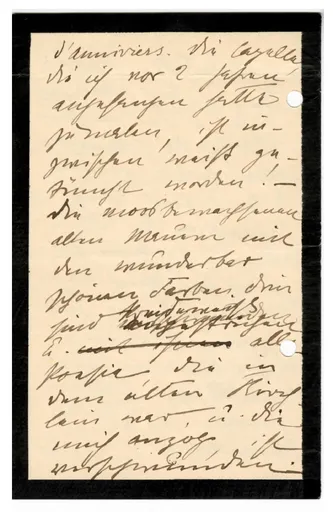 d'anniviers. Die Capelle,
die ich vor 2 Jahren
angefangen hatte
zu malen, ist in-
zwischen weiß ge-
tüncht worden! –
Die moosbewachsenen
alten Mauern mit
den wunderbar
schönen Farben drin
sind
u. all
Poesie die in
dem alten Kirch
lein war, u. die
mich anzog ist
verschwunden.